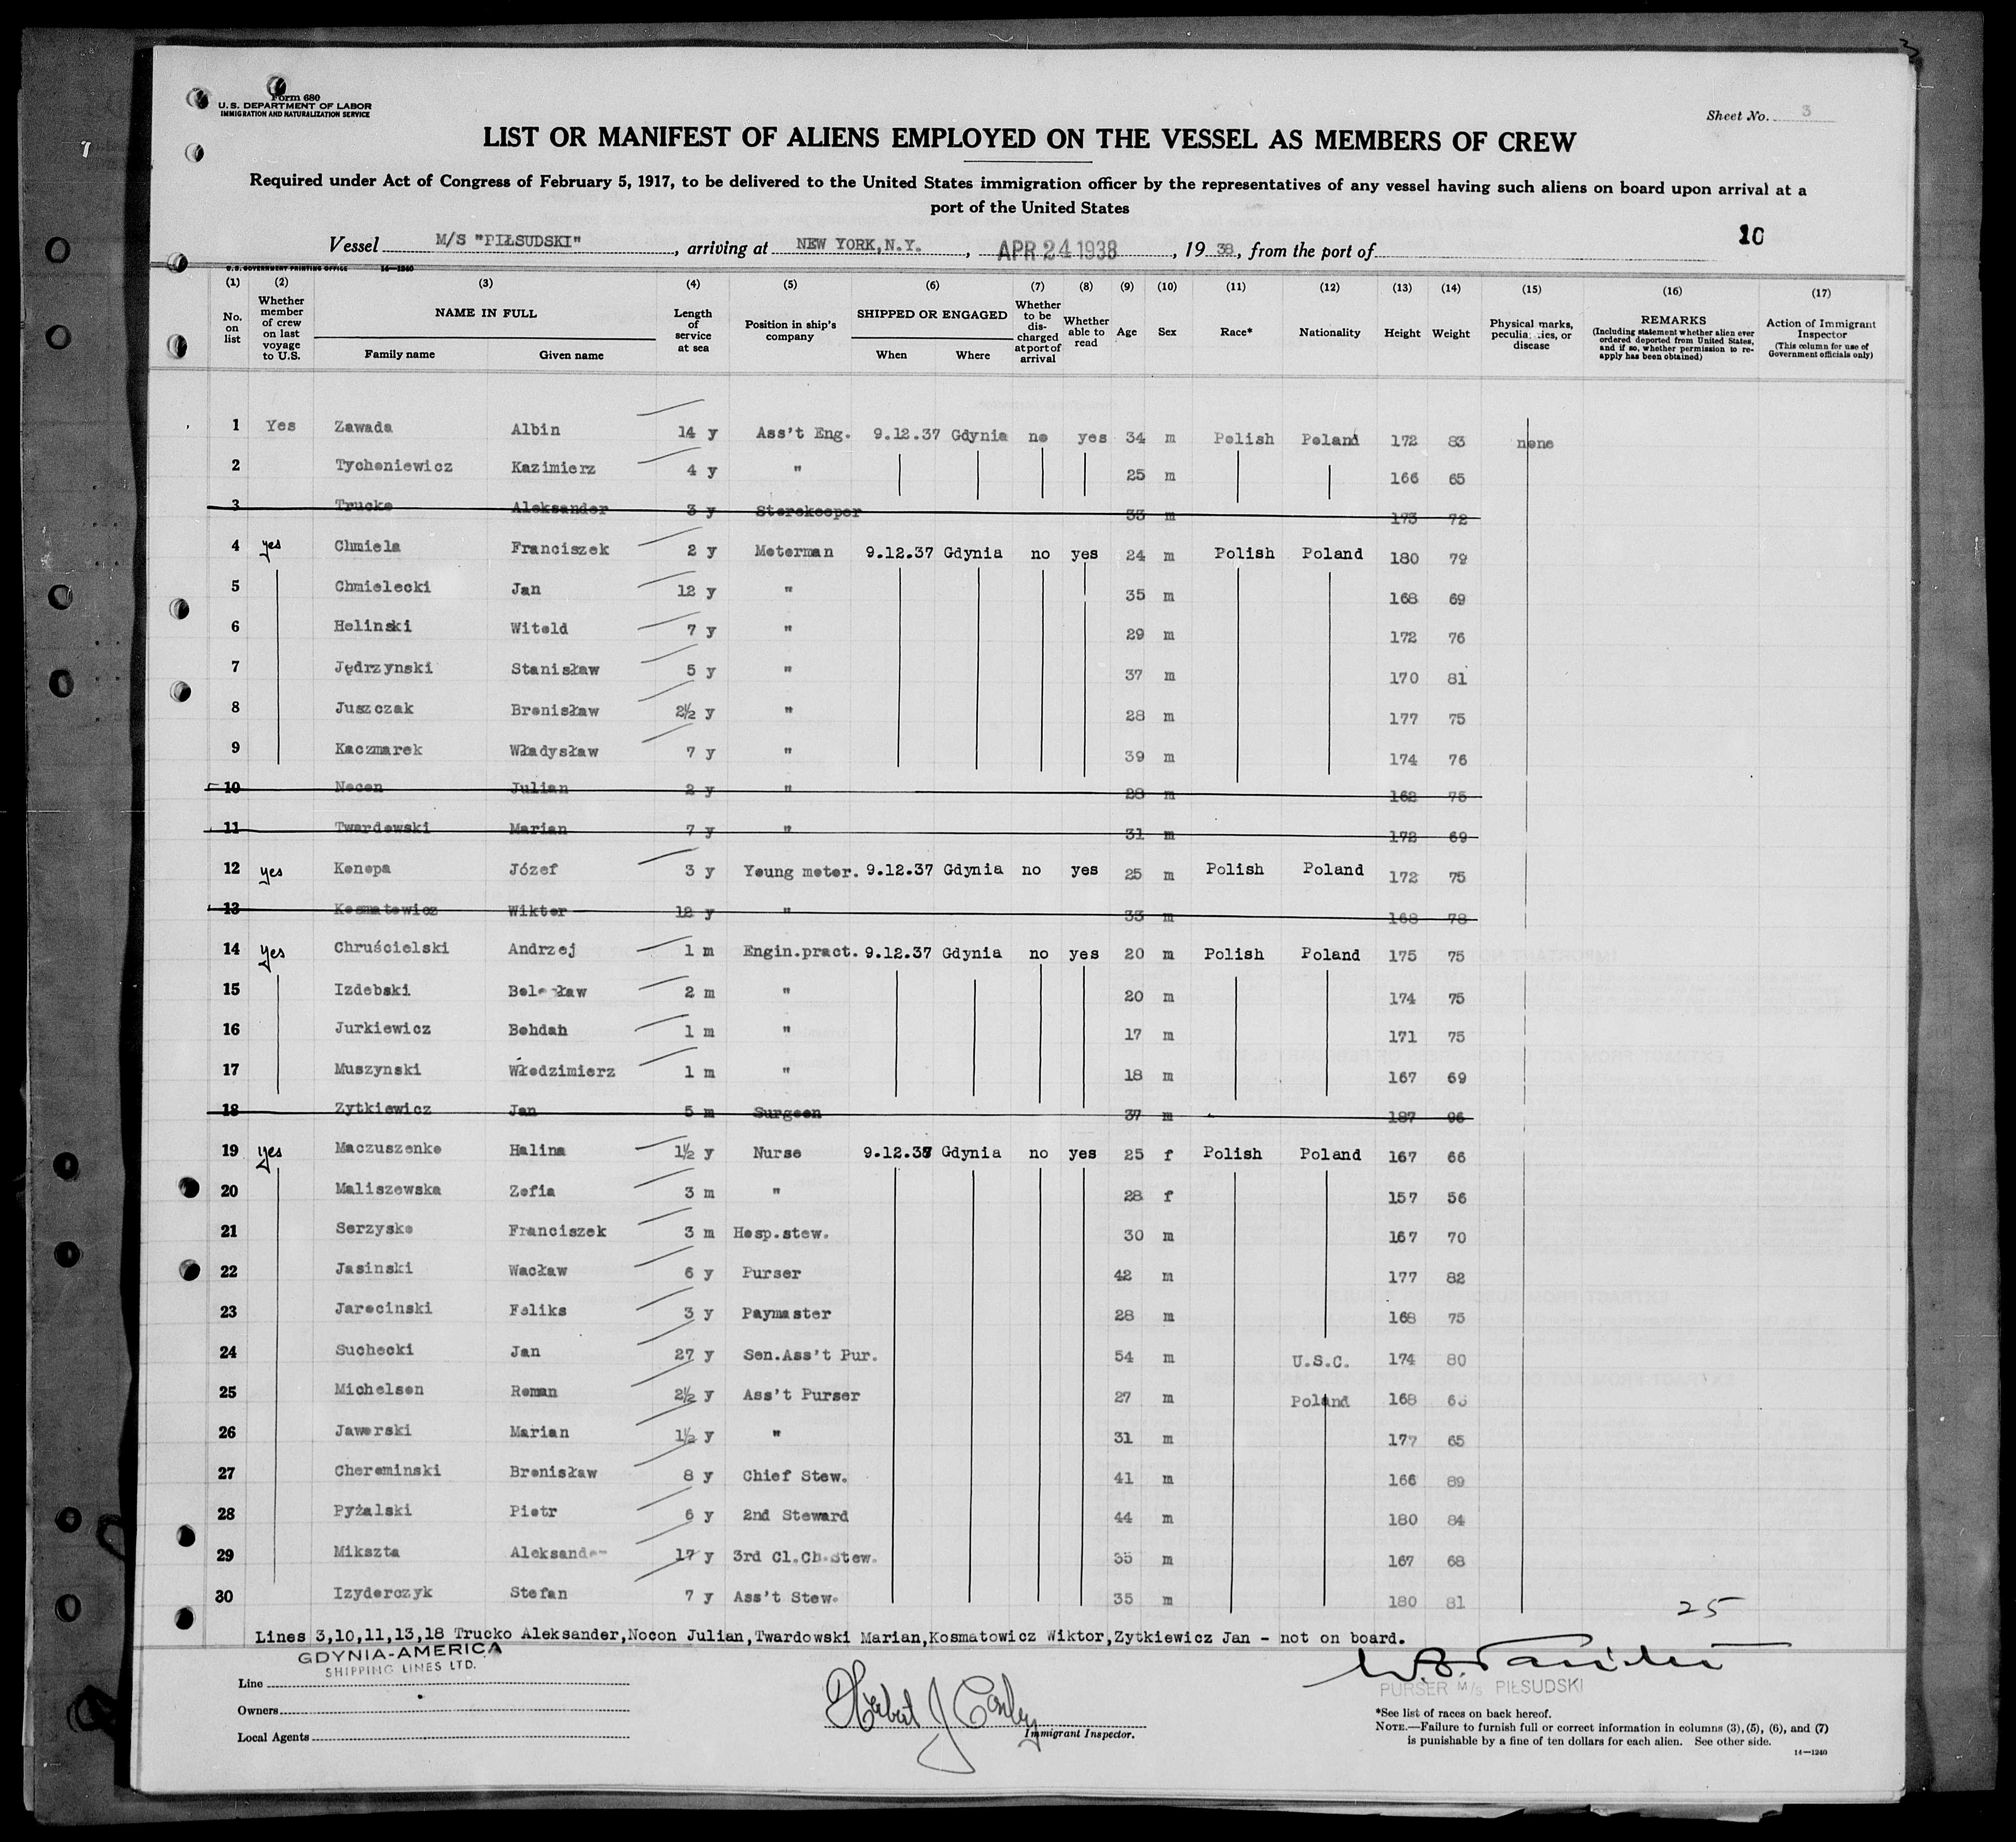 3
7
Form 680
U.S. DEPARTMENT OF LABOR
IMMIGRATION AND NATURALIZATION SERVICE
Sheet No. 3
LIST OR MANIFEST OF ALIENS EMPLOYED ON THE VESSEL AS MEMBERS OF CREW
Required under Act of Congress of February 5, 1917, to be delivered to the United States immigration officer by the representatives of any vessel having such aliens on board upon arrival at a
port of the United States
10
Vessel M/S "PIŁSUDSKI", arriving at NEW YORK,N.Y., APR 24 1938, 19 38, from the port of
U.S. GOVERNMENT PRINTING OFFICE 14—1240
(1) (2) (3) (4) (5) (6) (7) (8) (9) (10) (11) (12) (13) (14) (15) (16) (17)
No. on list
Whether member of crew on last voyage to U.S.
NAME IN FULL
Family name Given name
Length of service at sea
Position in ship's company
SHIPPED OR ENGAGED
When Where
Whether to be discharged at port of arrival
Whether able to read
Age Sex Race* Nationality Height Weight
Physical marks, peculiarities, or disease
REMARKS
(Including statement whether alien ever ordered deported from United States, and if so, whether permission to re-apply has been obtained)
Action of Immigrant Inspector
(This column for use of Government officials only)
1 Yes Zawada Albin 14 y Ass't Eng. 9.12.37 Gdynia no yes 34 m Polish Poland 172 83 none
2 Tychoniewicz Kazimierz 4 y " 25 m 166 65
3 Trucko Aleksander 3 y Storekeeper 33 m 173 72
4 yes Chmiela Franciszek 2 y Moterman 9.12.37 Gdynia no yes 24 m Polish Poland 180 79
5 Chmielecki Jan 12 y " 35 m 168 69
6 Helinski Witold 7 y " 29 m 172 76
7 Jędrzynski Stanisław 5 y " 37 m 170 81
8 Juszczak Bronisław 2½ y " 28 m 177 75
9 Kaczmarek Władysław 7 y " 39 m 174 76
10 Nocon Julian 2 y " 28 m 162 75
11 Twardowski Marian 7 y " 31 m 172 69
12 yes Konopa Józef 3 y Young motor. 9.12.37 Gdynia no yes 25 m Polish Poland 172 75
13 Kosmatowicz Wiktor 12 y " 33 m 168 78
14 yes Chruścielski Andrzej 1 m Engin.pract. 9.12.37 Gdynia no yes 20 m Polish Poland 175 75
15 Izdebski Bolesław 2 m " 20 m 174 75
16 Jurkiewicz Bohdan 1 m " 17 m 171 75
17 Muszynski Włodzimierz 1 m " 18 m 167 69
18 Zytkiewicz Jan 5 m Surgeon 37 m 187 96
19 yes Maczuszenko Halina 1½ y Nurse 9.12.37 Gdynia no yes 25 f Polish Poland 167 66
20 Maliszewska Zofia 3 m " 28 f 157 56
21 Serzysko Franciszek 3 m Hosp.stew. 30 m 167 70
22 Jasinski Wacław 6 y Purser 42 m 177 82
23 Jarocinski Feliks 3 y Paymaster 28 m 168 75
24 Suchocki Jan 27 y Sen.Ass't Pur. 54 m U.S.C. 174 80
25 Michelson Roman 2½ y Ass't Purser 27 m Poland 168
26 Jaworski Marian 1½ y " 31 m 177 65
27 Chorominski Bronisław 8 y Chief Stew. 41 m 166 89
28 Pyżalski Piotr 6 y 2nd Steward 44 m 180 84
29 Mikszta Aleksander 17 y 3rd Cl.Ch.Stew. 35 m 167 68
30 Izyderczyk Stefan 7 y Ass't Stew. 35 m 180 81
25
Lines 3,10,11,13,18 Trucko Aleksander,Nocon Julian,Twardowski Marian,Kosmatowicz Wiktor,Zytkiewicz Jan - not on board.
GDYNIA-AMERICA
SHIPPING LINES LTD.
Line
Owners
Local Agents
Herbert J Conley
Immigrant Inspector.
PURSER M/s PIŁSUDSKI
*See list of races on back hereof.
NOTE.—Failure to furnish full or correct information in columns (3), (5), (6), and (7)
is punishable by a fine of ten dollars for each alien. See other side.
14—1240